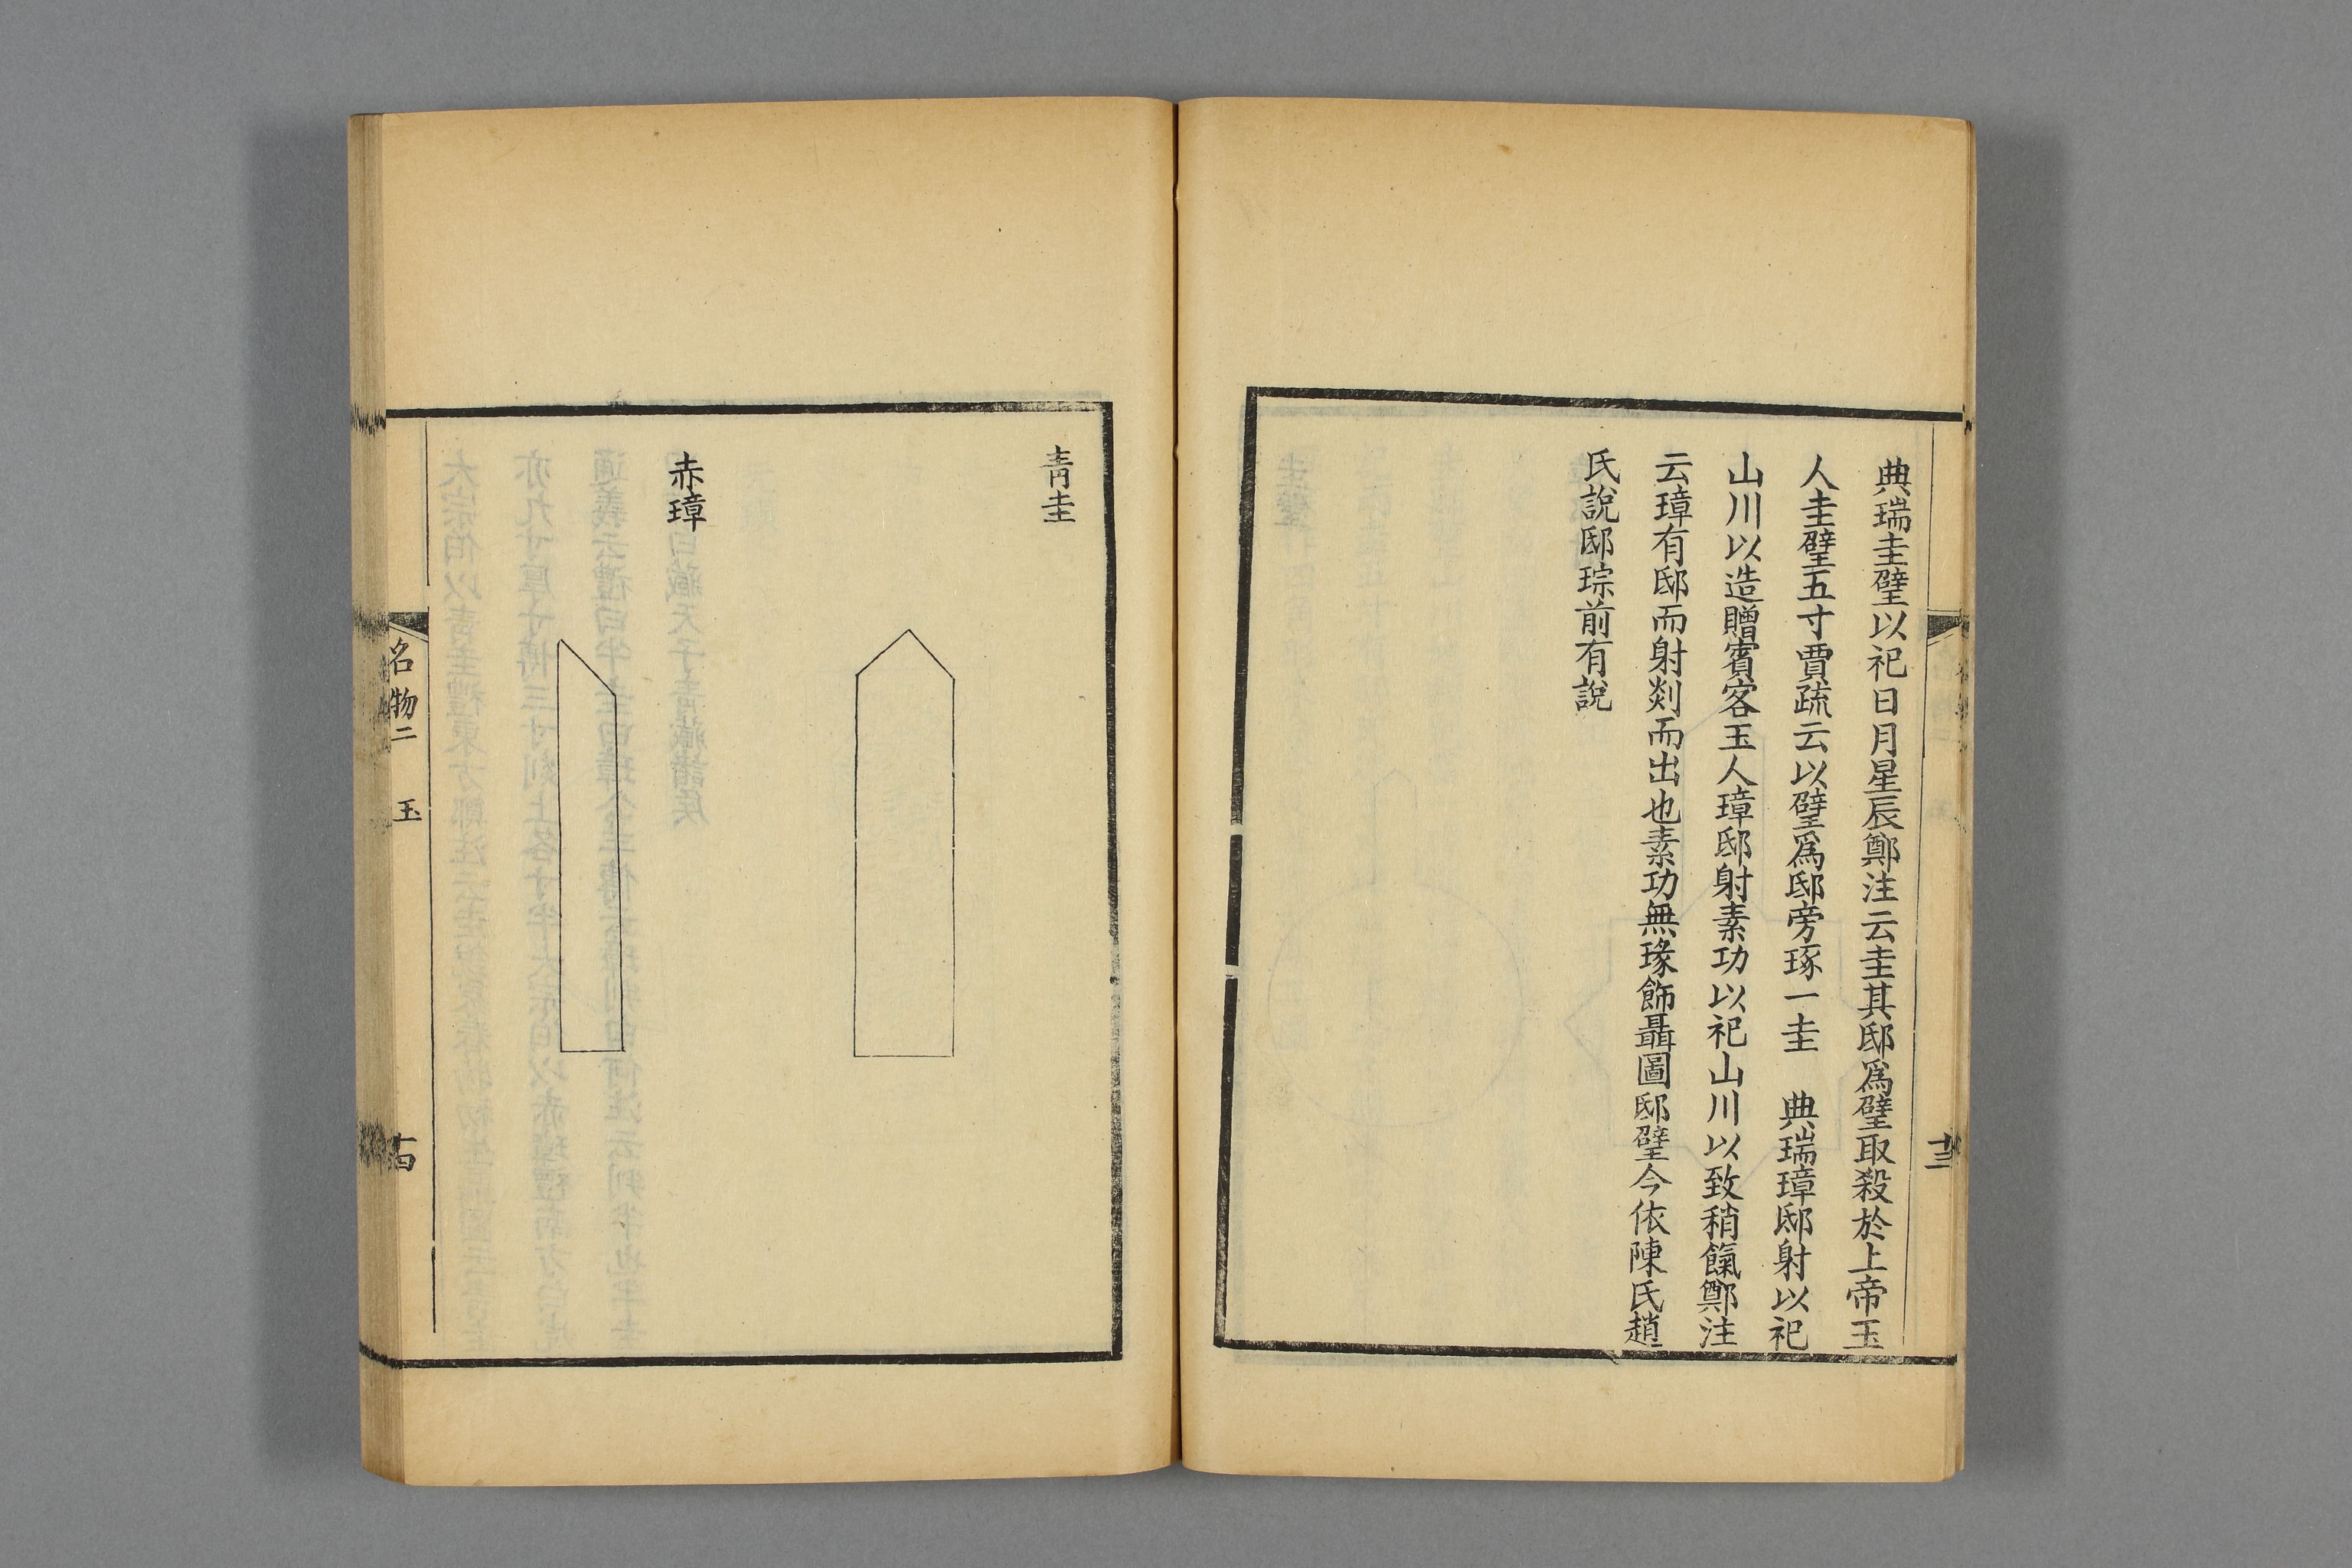 典瑞圭璧以祀日月星辰鄭注云圭其邸爲璧取殺於上帝玉
人圭璧五寸賈疏云以璧爲邸旁琢一圭　典瑞璋邸射以祀
山川以造贈賓客玉人璋邸射素功以祀山川以致稍餼鄭注
云璋有邸而射剡而出也素功無瑑飾聶圖邸璧今依陳氏趙
氏說邸琮前有說
十三
青圭
赤璋
名物二　玉
十四